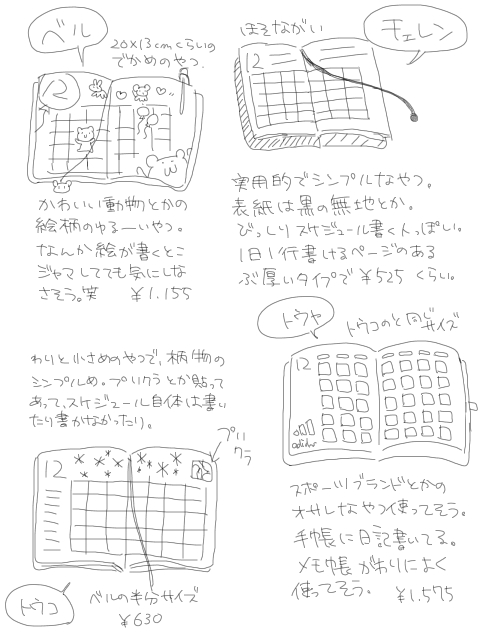 ベル
20×13cmくらいの
でかめのやつ.
12
かわいい動物とかの
絵柄のゆるーいやつ。
なんか絵が書くとこ
ジャマしてても気にしな
さそう。笑 ¥1.155
チェレン
ほそながい
12
実用的でシンプルなやつ。
表紙は黒の無地とか。
びっしりスケジュール書く人っぽい。
1日1行書けるページのある
ぶ厚いタイプで¥525くらい。
トウヤ
トウコのと同じ
サイズ
12
adidas
スポーツブランドとかの
オサレなやつ使ってそう。
手帳に日記書いてる。
メモ帳がわりによく
使ってそう。 ¥1.575
わりと小さめのやつで、柄物の
シンプルめ。プリクラとか貼って
あって、スケジュール自体は書い
たり書かなかったり。
プリ
クラ
12
トウコ
ベルの半分サイズ
¥630